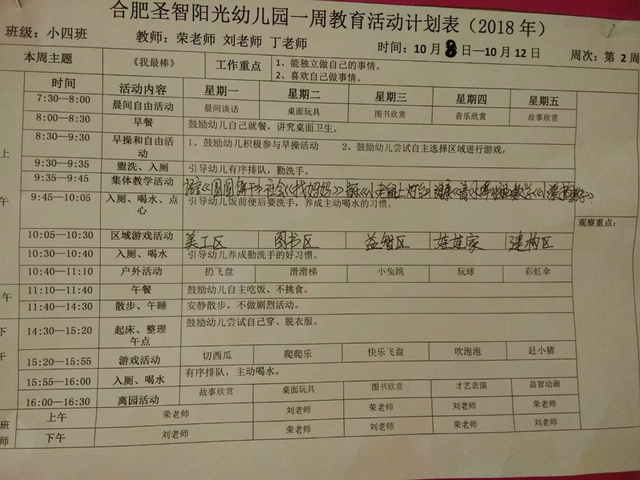 合肥圣智阳光幼儿园一周教育活动计划表（2018 年）
班级：小四班 教师：荣老师 刘老师 丁老师 时间：10 月 8 日—10 月 12 日 周次：第 2 周
本周主题 《我最棒》 工作重点 1、能独立做自己的事情。
2、喜欢自己做事情。
时间 活动内容 星期一 星期二 星期三 星期四 星期五
7:30—8:00 晨间自由活动 晨间谈话 桌面玩具 图书欣赏 音乐欣赏 故事欣赏
8:00—8:30 早餐 鼓励幼儿自己就餐，讲究桌面卫生。
8:30—9:30 早操和自由活动 1、鼓励幼儿积极参与早操活动 2、鼓励幼儿尝试自主选择区域进行游戏。
9:30—9:35 盥洗、入厕 引导幼儿有序排队，勤洗手。
9:35—9:45 集体教学活动 语言《圆圆饼干》 社会《找妈妈》
9:45—10:05 入厕、喝水、点心 引导幼儿饭前便后要洗手，养成主动喝水的习惯。
观察重点：
10:05—10:30 区域游戏活动 美工区 图书区 益智区 娃娃家 建构区
10:30—10:40 入厕、喝水 引导幼儿养成勤洗手的好习惯。
10:40—11:10 户外活动 扔飞盘 滑滑梯 小兔跳 玩球 彩虹伞
11:10—11:40 午餐 鼓励幼儿自主吃饭、不挑食。
11:40—14:30 散步、午睡 安静散步，不做剧烈活动。
14:30—15:20 起床、整理 午点 鼓励幼儿尝试自己穿、脱衣服。
15:20—15:55 游戏活动 切西瓜 爬爬乐 快乐飞盘 吹泡泡 赶小猪
15:55—16:00 入厕、喝水 有序排队，主动喝水。
16:00—16:30 离园活动 故事欣赏 桌面玩具 图书欣赏 才艺表演 益智动画
上午 荣老师 刘老师 荣老师 刘老师 荣老师
下午 刘老师 荣老师 刘老师 荣老师 刘老师